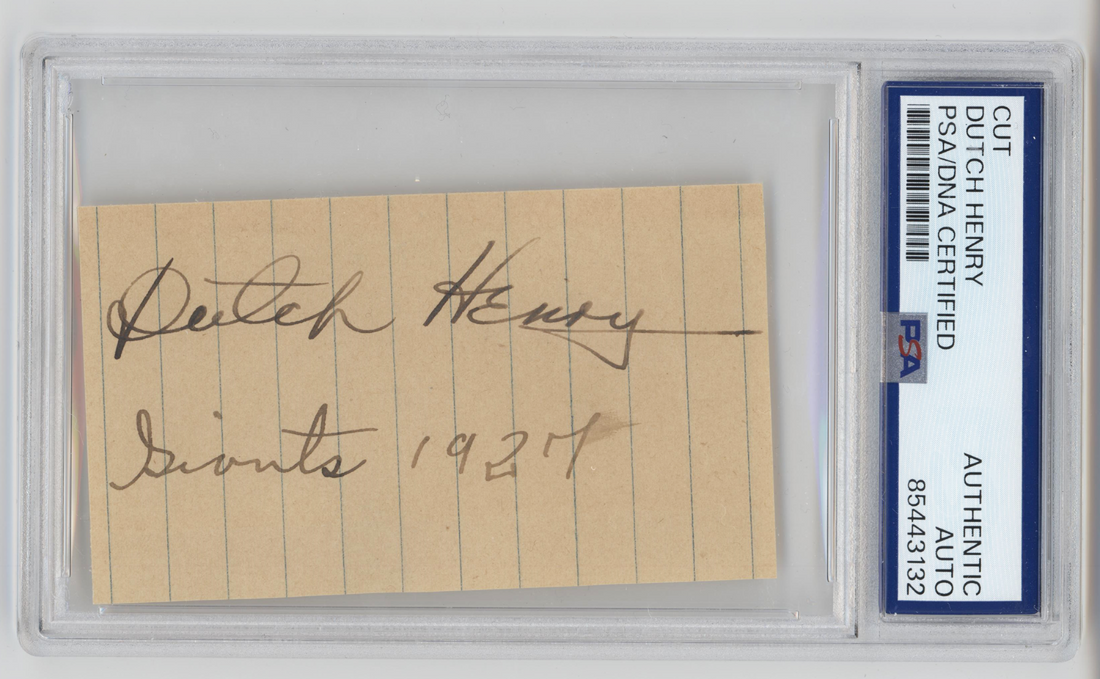 Dutch Henry
Giants 1927
CUT
DUTCH HENRY
PSA/DNA CERTIFIED
AUTHENTIC
AUTO
85443132
PSA